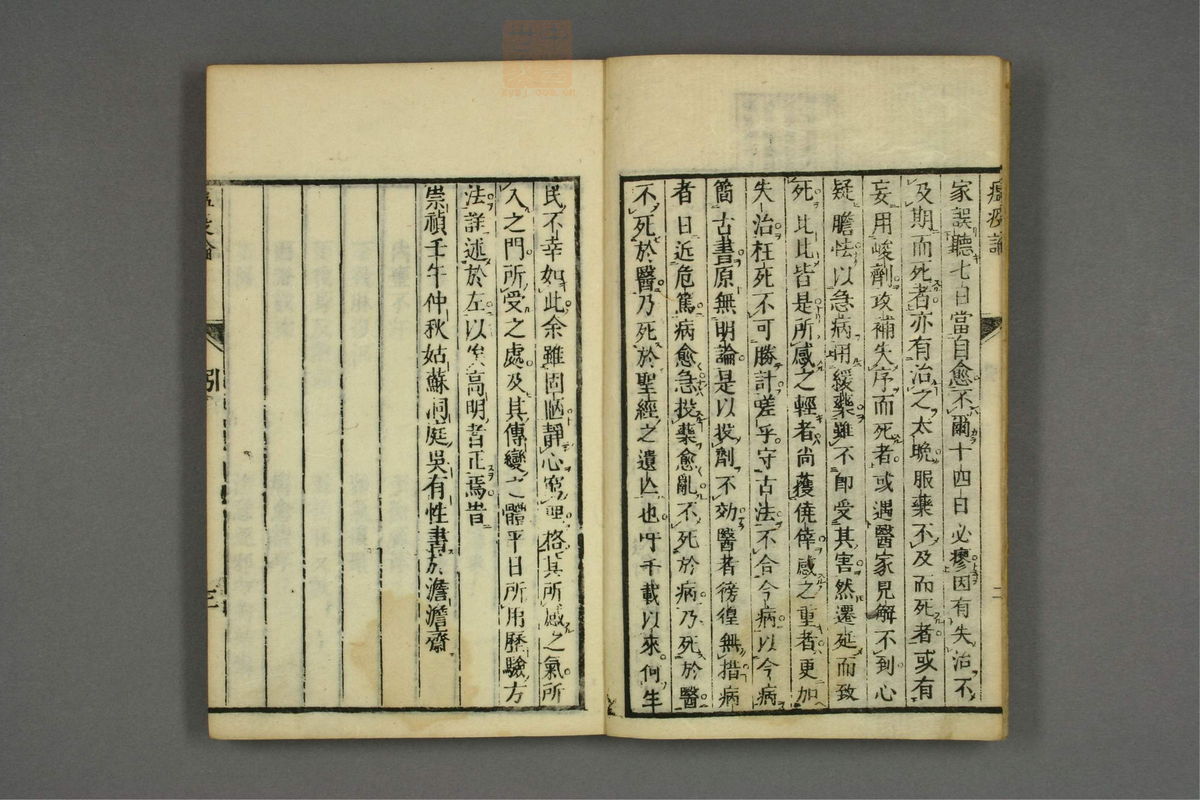 瘟疫論
二
家誤聽七日當自愈不爾十四日必瘳因有失治不
及期而死者亦有治之太晚服藥不及而死者或有
妄用峻劑攻補失序而死者或遇醫家見解不到心
疑膽怯以急病用緩藥雖不即受其害然遷延而致
死比比皆是所感之輕者尚獲僥倖感之重者更加
失治枉死不可勝計嗟乎守古法不合今病以今病
簡古書原無明論是以投劑不効醫者徬徨無措病
者日近危篤病愈急投藥愈亂不死於病乃死於醫
不死於醫乃死於聖經之遺亾也吁千載以來何生
民不幸如此余雖固陋靜心窮理格其所感之氣所
入之門所受之處及其傳變之體平日所用歷驗方
法詳述於左以俟高明者正焉昔
崇禎壬午仲秋姑蘇洞庭吳有性書於澹澹齋
引
三